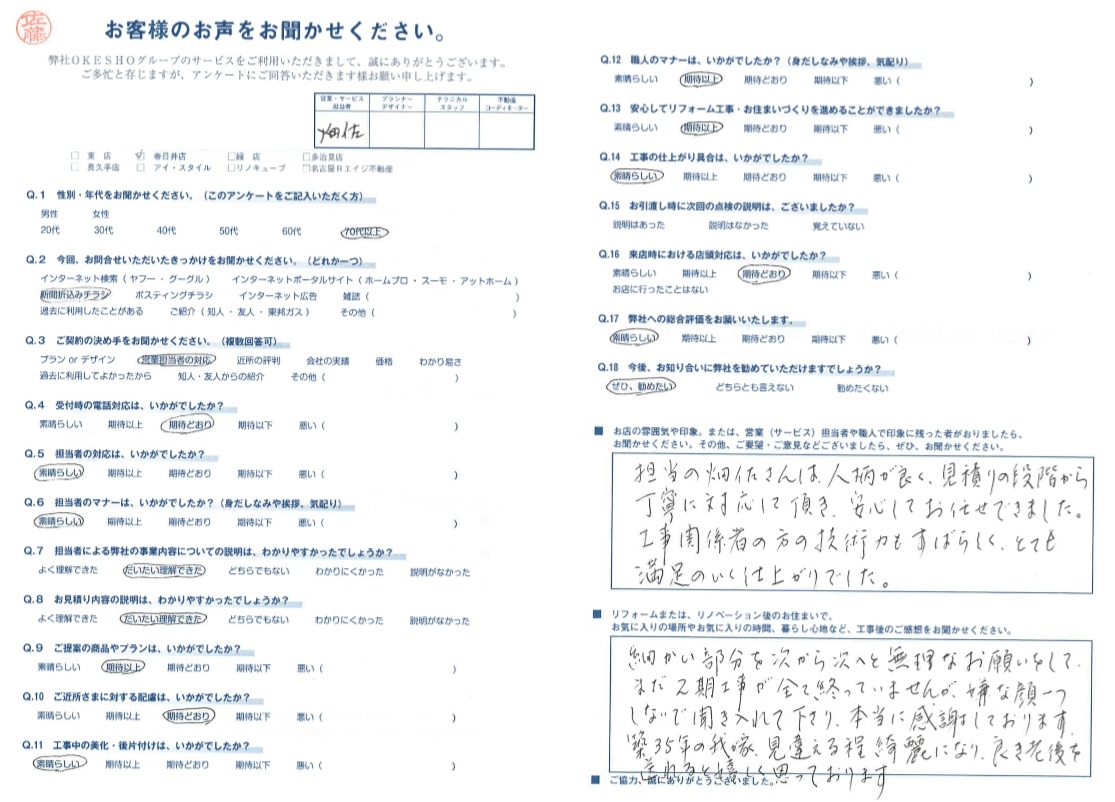 佐藤
お客様のお声をお聞かせください。
弊社OKESHOグループのサービスをご利用いただきまして、誠にありがとうございます。
ご多忙と存じますが、アンケートにご回答いただきます様お願い申し上げます。
営業・サービス担当者 プランナーデザイナー テクニカルスタッフ 不動産コーディネーター
畑佐
□ 東店 ☑ 春日井店 □緑店 □多治見店
□ 長久手店 □ アイ・スタイル □リノキューブ □名古屋Rエイジ不動産
Q.1 性別・年代をお聞かせください。(このアンケートをご記入いただく方)
男性 女性
20代 30代 40代 50代 60代 70代以上
Q.2 今回、お問合せいただいたきっかけをお聞かせください。(どれか一つ)
インターネット検索(ヤフー・グーグル) インターネットポータルサイト(ホームプロ・スーモ・アットホーム)
新聞折込みチラシ ポスティングチラシ インターネット広告 雑誌( )
過去に利用したことがある ご紹介(知人・友人・東邦ガス) その他( )
Q.3 ご契約の決め手をお聞かせください。(複数回答可)
プラン or デザイン 営業担当者の対応 近所の評判 会社の実績 価格 わかり易さ
過去に利用してよかったから 知人・友人からの紹介 その他( )
Q.4 受付時の電話対応は、いかがでしたか?
素晴らしい 期待以上 期待どおり 期待以下 悪い( )
Q.5 担当者の対応は、いかがでしたか?
素晴らしい 期待以上 期待どおり 期待以下 悪い( )
Q.6 担当者のマナーは、いかがでしたか?(身だしなみや挨拶、気配り)
素晴らしい 期待以上 期待どおり 期待以下 悪い( )
Q.7 担当者による弊社の事業内容についての説明は、わかりやすかったでしょうか?
よく理解できた だいたい理解できた どちらでもない わかりにくかった 説明がなかった
Q.8 お見積り内容の説明は、わかりやすかったでしょうか?
よく理解できた だいたい理解できた どちらでもない わかりにくかった 説明がなかった
Q.9 ご提案の商品やプランは、いかがでしたか?
素晴らしい 期待以上 期待どおり 期待以下 悪い( )
Q.10 ご近所さまに対する配慮は、いかがでしたか?
素晴らしい 期待以上 期待どおり 期待以下 悪い( )
Q.11 工事中の美化・後片付けは、いかがでしたか?
素晴らしい 期待以上 期待どおり 期待以下 悪い( )
Q.12 職人のマナーは、いかがでしたか?(身だしなみや挨拶、気配り)
素晴らしい 期待以上 期待どおり 期待以下 悪い( )
Q.13 安心してリフォーム工事・お住まいづくりを進めることができましたか?
素晴らしい 期待以上 期待どおり 期待以下 悪い( )
Q.14 工事の仕上がり具合は、いかがでしたか?
素晴らしい 期待以上 期待どおり 期待以下 悪い( )
Q.15 お引渡し時に次回の点検の説明は、ございましたか?
説明はあった 説明はなかった 覚えていない
Q.16 来店時における店頭対応は、いかがでしたか?
素晴らしい 期待以上 期待どおり 期待以下 悪い( )
お店に行ったことはない
Q.17 弊社への総合評価をお願いいたします。
素晴らしい 期待以上 期待どおり 期待以下 悪い( )
Q.18 今後、お知り合いに弊社を勧めていただけますでしょうか?
ぜひ、勧めたい どちらとも言えない 勧めたくない
■ お店の雰囲気や印象。または、営業(サービス)担当者や職人で印象に残った者がおりましたら、
お聞かせください。その他、ご要望・ご意見などございましたら、ぜひ、お聞かせください。
担当の畑佐さんは、人柄が良く、見積りの段階から
丁寧に対応して頂き、安心してお任せできました。
工事関係者の方の技術力もすばらしく、とても
満足のいく仕上がりでした。
■ リフォームまたは、リノベーション後のお住まいで、
お気に入りの場所やお気に入りの時間、暮らし心地など、工事後のご感想をお聞かせください。
細かい部分を次から次へと無理なお願いをして、
まだ2期工事が全て終っていませんが、嫌な顔一つ
しないで聞き入れて下さり、本当に感謝しております。
築35年の我家、見違える程綺麗になり、良き老後を
送れると嬉しく思っております
■ ご協力、誠にありがとうございました。